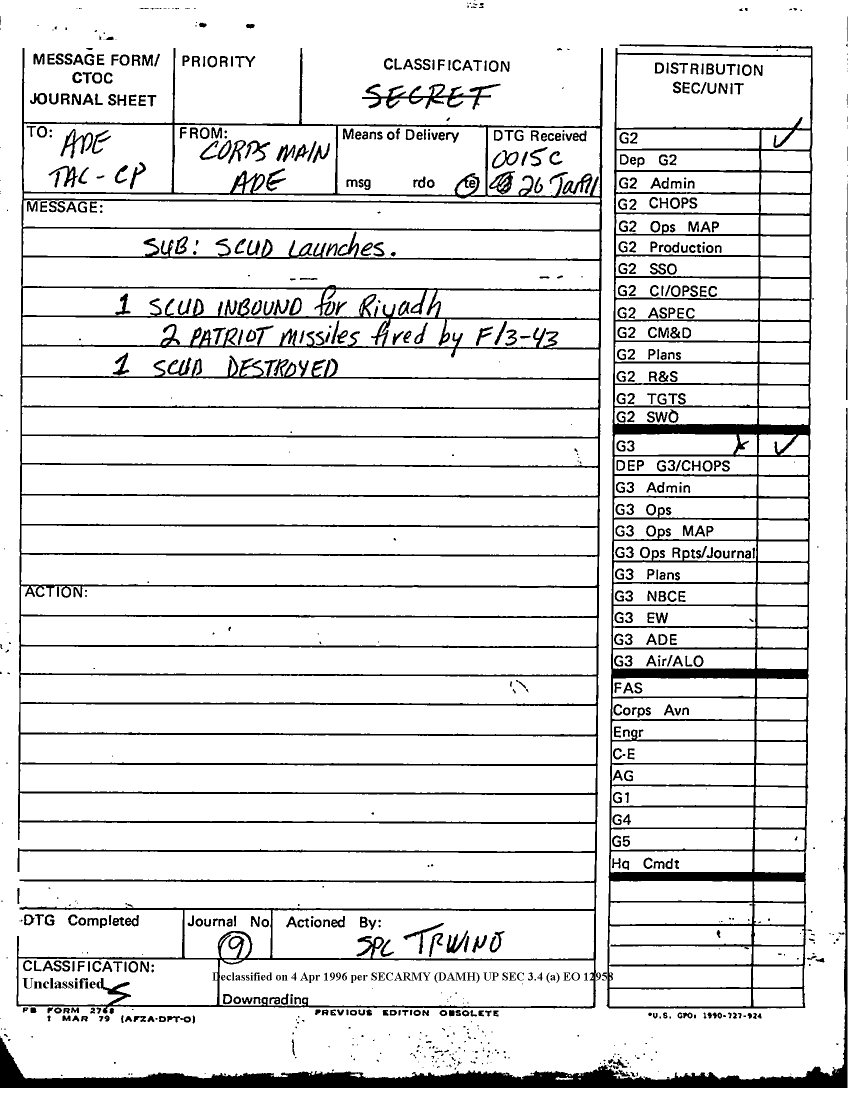 MESSAGE FORM/
CTOC
JOURNAL SHEET
PRIORITY
CLASSIFICATION
SECRET
DISTRIBUTION
SEC/UNIT
TO: ADE
TAC-CP
FROM: CORPS MAIN
ADE
Means of Delivery
msg rdo te
DTG Received
0015C
26 Jan91
MESSAGE:
SUB: SCUD Launches.
1 SCUD INBOUND for Riyadh
2 PATRIOT missiles fired by F/3-43
1 SCUD DESTROYED
ACTION:
G2 ✓
Dep G2
G2 Admin
G2 CHOPS
G2 Ops MAP
G2 Production
G2 SSO
G2 CI/OPSEC
G2 ASPEC
G2 CM&D
G2 Plans
G2 R&S
G2 TGTS
G2 SWO
G3 ✓
DEP G3/CHOPS
G3 Admin
G3 Ops
G3 Ops MAP
G3 Ops Rpts/Journal
G3 Plans
G3 NBCE
G3 EW
G3 ADE
G3 Air/ALO
FAS
Corps Avn
Engr
C-E
AG
G1
G4
G5
Hq Cmdt
DTG Completed
Journal No.
9
Actioned By:
SPC
CLASSIFICATION:
Unclassified
Declassified on 4 Apr 1996 per SECARMY (DAMH) UP SEC 3.4 (a) EO 12958
Downgrading
FB FORM 2768
1 MAR 79 (AFZA-DPT-O)
PREVIOUS EDITION OBSOLETE
*U.S. GPO: 1990-727-924